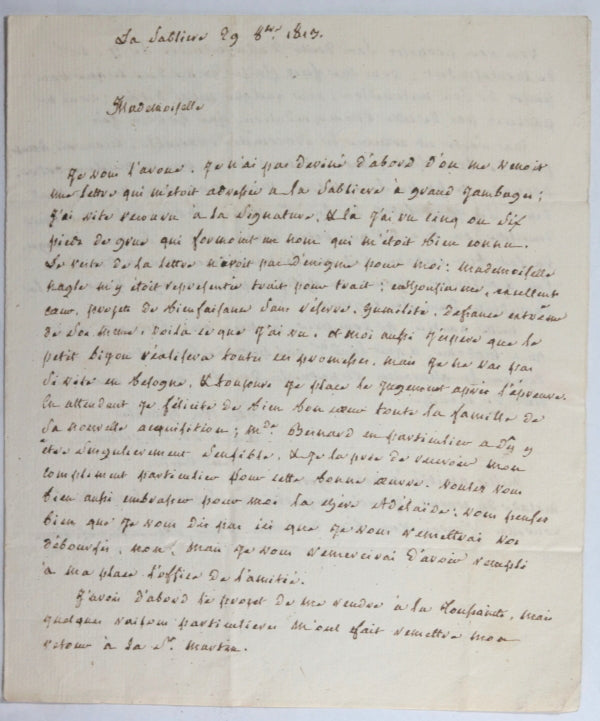 La Sabliere 29 8bre 1813.
Mademoiselle
Je vous l'avoue. Je n'ai pas deviné d'abord d'ou me venoit
une lettre qui m'étoit adressée a la Sabliere à grand Jambages;
J'ai vite recouru à la Signature, & là J'ai vu cinq ou Six
pieds de grue qui formoint un nom qui m'étoit bien connu.
Le reste de la lettre n'avoit pas d'enigme pour moi: Mademoiselle
n'y étoit representée trait pour trait; enthousiasme, excellent
cœur, projets de bienfaisance Sans réserve. humilité. Defiance extrême
de Soi même. voilà ce que J'ai vu. et moi aussi J'espère que le
petit Bijou réalisera toutes ces promesses. mais Je ne vas pas
Si vite en besogne, & toujours Je place le Jugement après l'épreuve.
En attendant Je félicite de bien bon cœur toute la famille de
Sa nouvelle acquisition; Mde. Bernard en particulier a Dû y
être Singulierement Sensible. & Je la prie de recevoir mon
compliment particulier pour cette bonne œuvre. voulez vous
bien aussi embrasser pour moi la chère Adélaïde: vous pensez
bien que Je ne vous dis pas ici que Je vous remettrai vos
débourses. non. mais Je vous remercirai d'avoir rempli
à ma place l'office de l'amitié.
J'avois D'abord le projet de me rendre à la Toussaints, mais
quelques raisons particulieres m'ont fait remettre mon
retour à la St. Martin.